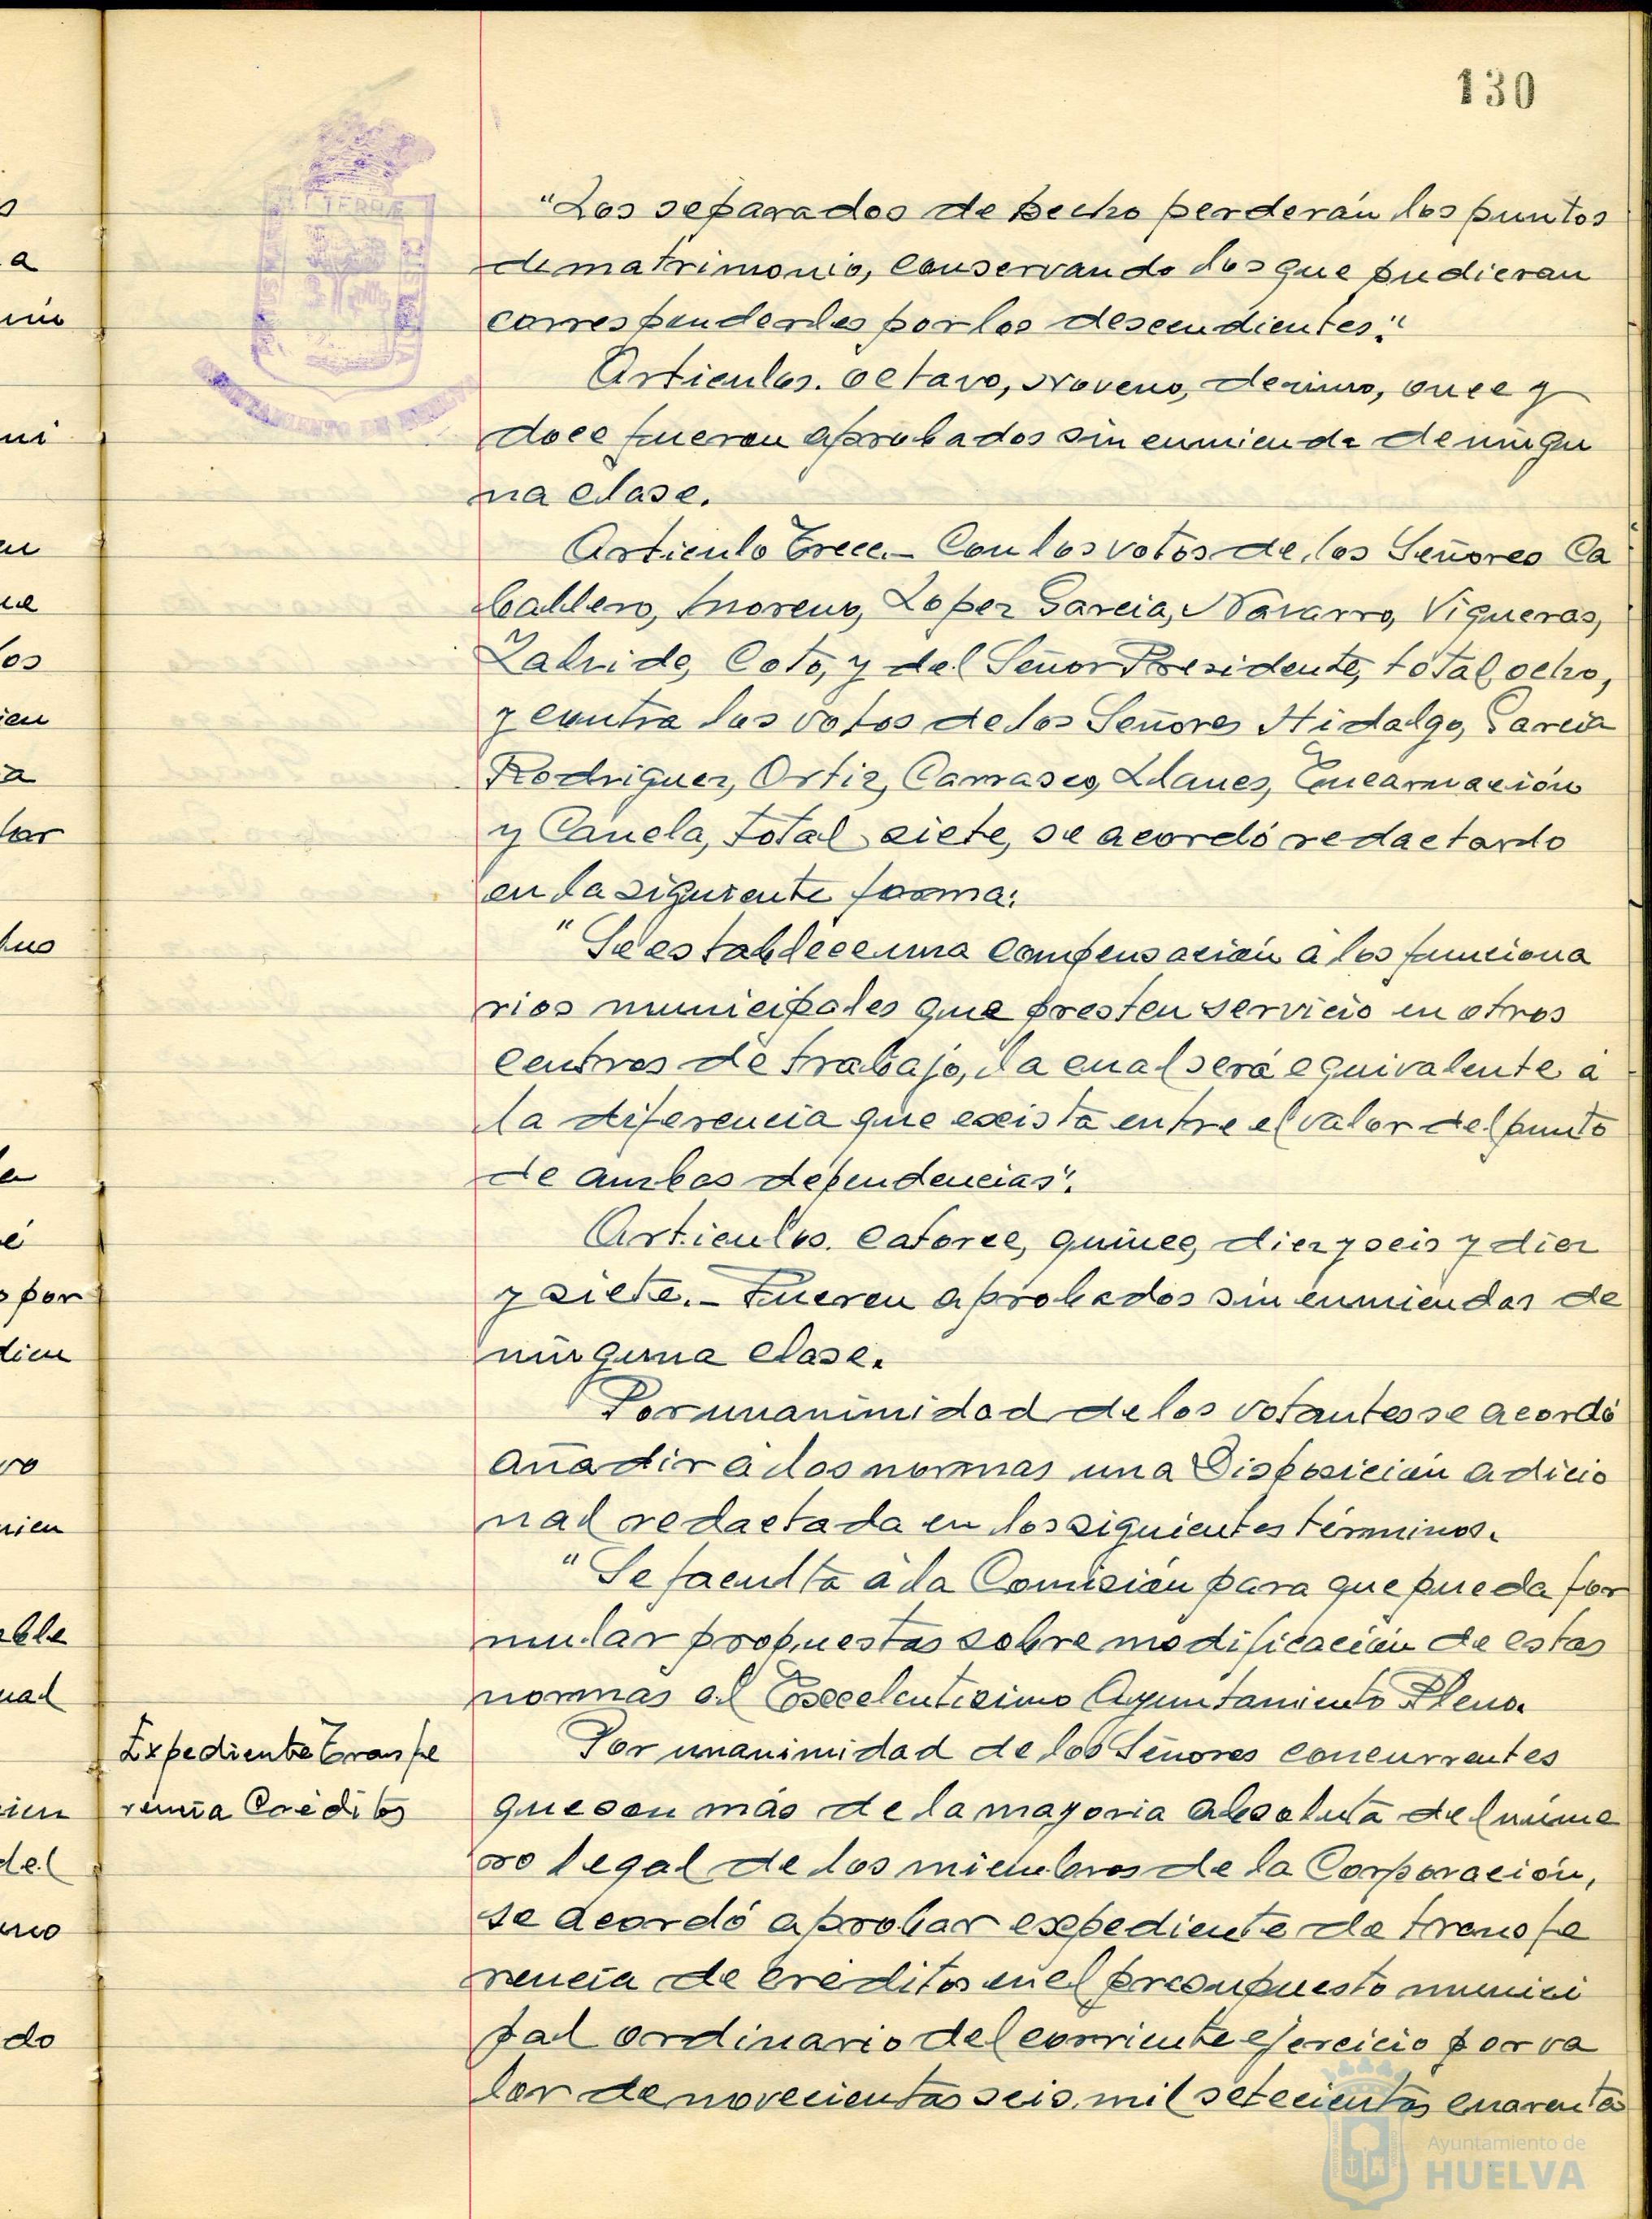 130
"Los separados de hecho perderán los puntos
de matrimonio, conservando los que pudieran
corresponderles por los descendientes."
Articulos. octavo, noveno, decimo, once y
doce fueron aprobados sin enmienda de ningu
na clase.
Articulo Trece.- Con los votos de los Señores Ca
ballero, Moreno, Lopez Garcia, Navarro, Vigueras,
Zalvide, Coto, y del Señor Presidente, total ocho,
y contra los votos de los Señores Hidalgo, Garcia
Rodriguez, Ortiz, Carrasco, Llanes, Encarnación
y Canela, total siete, se acordó redactarlo
en la siguiente forma:
"Se establece una compensación a los funciona
rios municipales que presten servicio en otros
centros de trabajo, la cual será equivalente a
la diferencia que exista entre el valor del punto
de ambas dependencias".
Articulos. catorce, quince, diez y seis y diez
y siete.- Fueron aprobados sin enmiendas de
ninguna clase.
Por unanimidad de los votantes se acordó
añadir a las normas una Disposición adicio
nal redactada en los siguientes términos.
"Se faculta a la Comisión para que pueda for
mular propuestas sobre modificación de estas
normas al Excelentisimo Ayuntamiento Pleno.
Expediente Transfe
rencia Créditos
Por unanimidad de los Señores concurrentes
que son más de la mayoria absoluta del núme
ro legal de los miembros de la Corporación,
se acordó aprobar expediente de transfe
rencia de creditos en el presupuesto munici
pal ordinario del corriente ejercicio por va
lor de novecientas seis mil setecientas cuarenta
Ayuntamiento de
HUELVA